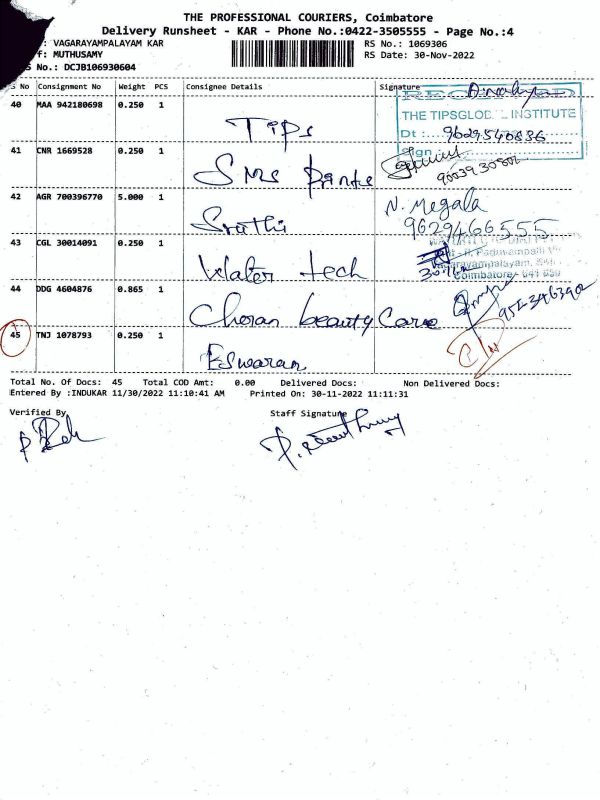 THE PROFESSIONAL COURIERS, Coimbatore
Delivery Runsheet - KAR - Phone No.:0422-3505555 - Page No.:4
: VAGARAYAMPALAYAM KAR RS No.: 1069306
f: MUTHUSAMY RS Date: 30-Nov-2022
s No.: DCJB106930604
S No Consignment No Weight PCS Consignee Details Signature
40 MAA 942180698 0.250 1
THE TIPSGLOB L INSTITUTE
Tips Dt :
41 CNR 1669528 0.250 1 Sign :
SMS Prints
42 AGR 700396770 5.000 1 N. Megala
Sruthi 9629466555
43 CGL 30014091 0.250 1
Water tech Coimbatore- 641 659
44 DDG 4604876 0.865 1
Cheran beauty Care
45 TNJ 1078793 0.250 1
Eswaran
Total No. Of Docs: 45 Total COD Amt: 0.00 Delivered Docs: Non Delivered Docs:
Entered By :INDUKAR 11/30/2022 11:10:41 AM Printed On: 30-11-2022 11:11:31
Verified By Staff Signature